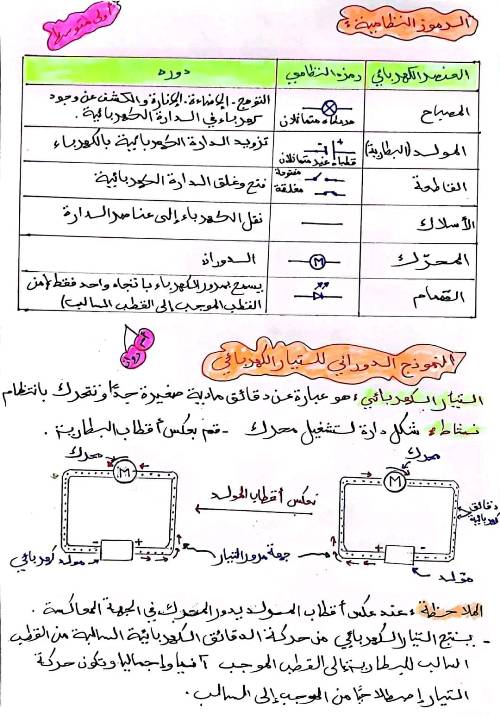 أولى متوسط
الرموز النظامية :
العنصر الكهربائي رمزه النظامي دوره
المصباح مدخلاه متماثلان التوهج - الإضاءة - الإنارة والكشف عن وجود
كهرباء في الدارة الكهربائية .
المولد (البطارية) - + قطباه غير متماثلان تزويد الدارة الكهربائية بالكهرباء
القاطعة مفتوحة مغلقة فتح وغلق الدارة الكهربائية
الأسلاك نقل الكهرباء إلى عناصر الدارة
المحرّك M الدوران
الصمام يسمح بمرور الكهرباء باتجاه واحد فقط (من
القطب الموجب إلى القطب السالب)
النموذج الدوراني للتيار الكهربائي
التيار الكهربائي : هو عبارة عن دقائق مادية صغيرة جدًا وتتحرك بانتظام
نشاط : شكل دارة لتشغيل محرك - قم بعكس أقطاب البطارية .
محرك
M
دقائق
كهربائية
- +
مولد
نعكس أقطاب المولد
جهة مرور التيار
محرك
M
+ -
مولد كهربائي
الملاحظة : عند عكس أقطاب المولد يدور المحرك في الجهة المعاكسة .
- ينتج التيار الكهربائي من حركة الدقائق الكهربائية السالبة من القطب
السالب للبطارية إلى القطب الموجب آنيا وإجماليا وتكون حركة
التيار إصطلاحًا من الموجب إلى السالب .